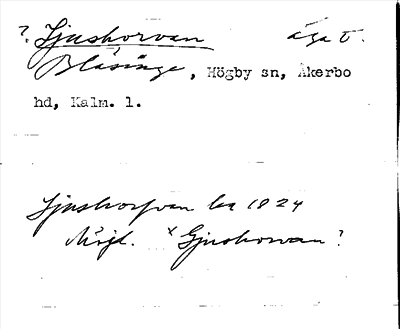 ? Ljushorvan äga t.
Blåsinge, Högby sn, Åkerbo
hd, Kalm. l.
Ljushorfvan lsa 1824
Möjl. ˣ Gjushorvan?